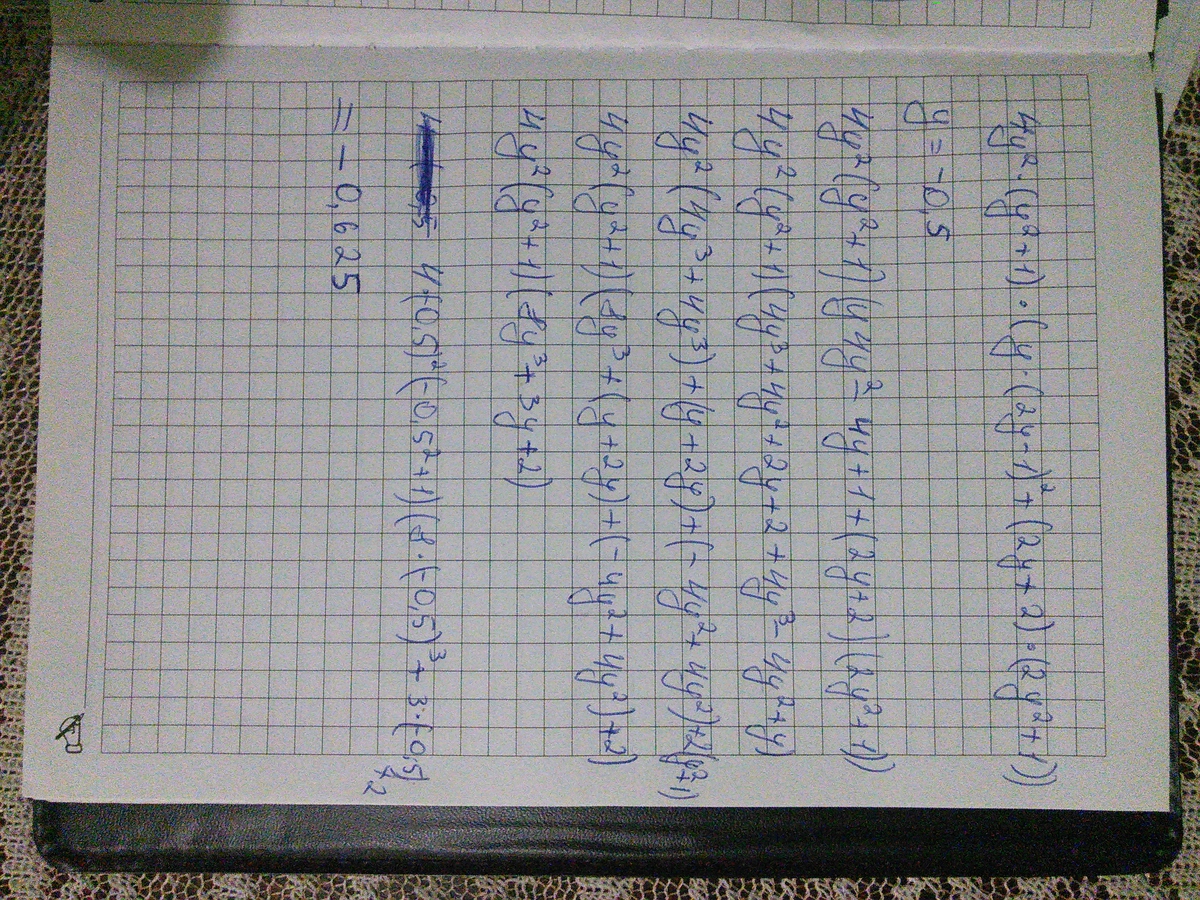 4y²·(y²+1)·(y·(2y-1)²+(2y+2)·(2y²+1))
y=-0,5
4y²(y²+1)(y4y²-4y+1+(2y+2)(2y²+1))
4y²(y²+1)(4y³+4y²+2y+2+4y³-4y²+y)
4y²(4y³+4y³)+(y+2y)+(-4y²+4y²)+2(y²+1)
4y²(y²+1)(8y³+(y+2y)+(-4y²+4y²)+2)
4y²(y²+1)(8y³+3y+2)
4·(0,5)²(-0,5²+1)(8·(-0,5)³+3·(-0,5)+2
=-0,625